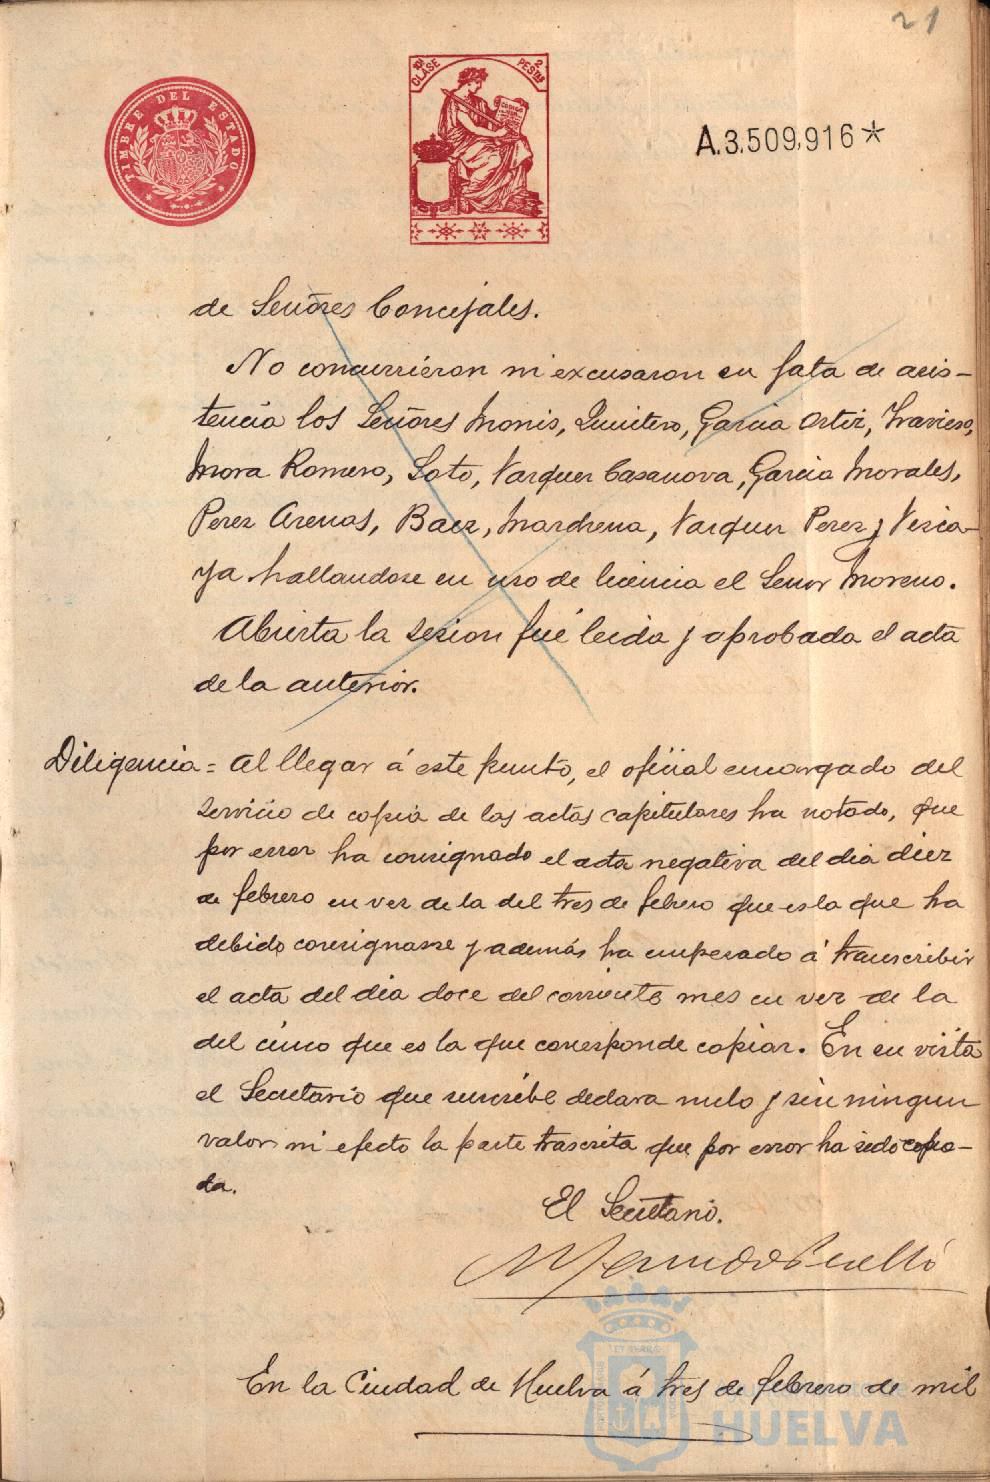 21
TIMBRE DEL ESTADO
10ª CLASE
2 PESTAS
CODIGO
A.3,509,916*
de Señores Concejales.
No concurrieron ni excusaron su fata de asis-
tencia los Señores Monis, Quintero, Garcia Ortiz, Travieso,
Mora Romero, Soto, Vazquez Casanova, Garcia Morales,
Perez Arenas, Baez, Marchena, Vazquez Perez y Vizca-
ya hallandose en uso de licencia el Señor Moreno.
Abierta la sesion fué leida y aprobada el acta
de la anterior.
Diligencia = Al llegar á este punto, el oficial encargado del
servicio de copia de las actas capitulares ha notado, que
por error ha consignado el acta negativa del dia diez
de febrero en vez de la del tres de febrero que es la que ha
debido consignarse y además ha empezado á transcribir
el acta del dia doce del corriente mes en vez de la
del cinco que es la que corresponde copiar. En su vista
el Secretario que suscribe declara nulo y sin ningun
valor ni efecto la parte trascrita que por error ha sido copia-
da.
El Secretario.
En la Ciudad de Huelva á tres de febrero de mil
HUELVA